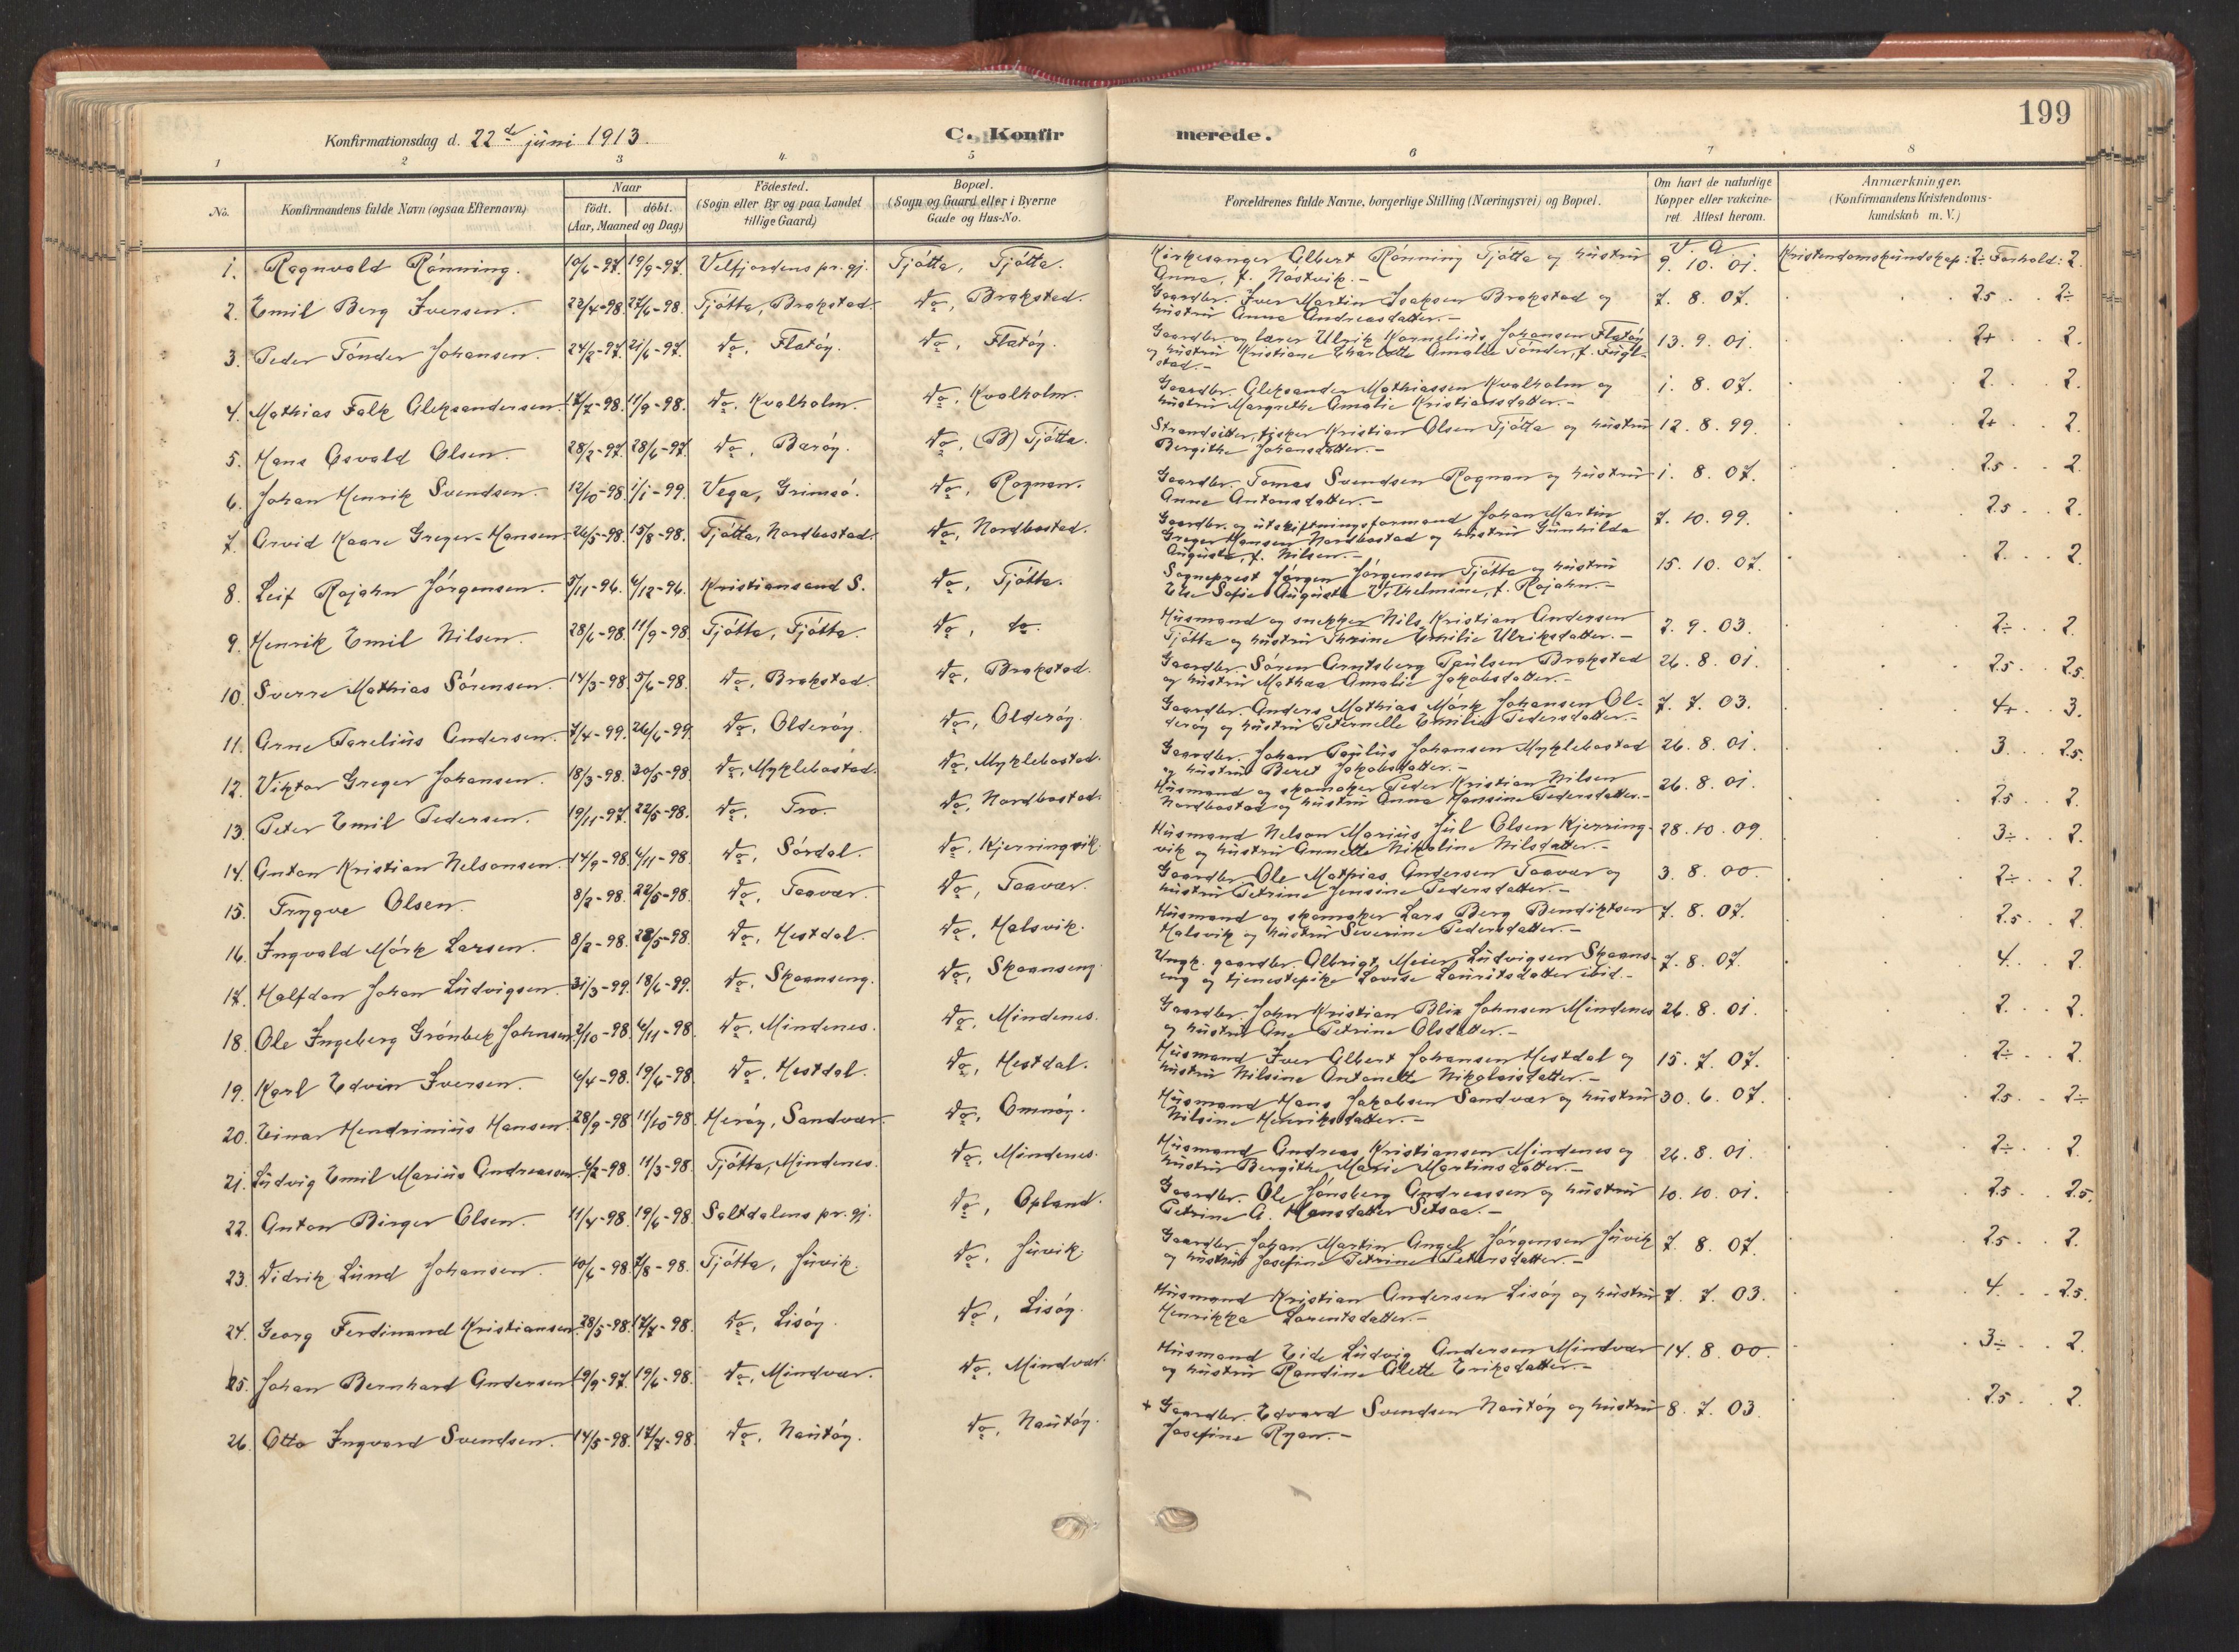 199
Konfirmationsdag d. 22de juni 1913.
C. Konfirmerede.
1 2 3 4 5 6 7 8
No.
Konfirmandens fulde Navn (ogsaa Efternavn)
Naar
født. døbt.
(Aar, Maaned og Dag)
Födested.
(Sogn eller By og paa Landet
tillige Gaard)
Bopæl.
(Sogn og Gaard eller i Byerne
Gade og Hus-No.
Forældrenes fulde Navne, borgerlige Stilling (Næringsvei) og Bopæl.
Om havt de naturlige
Kopper eller vakcine-
ret. Attest herom.
Anmærkninger.
(Konfirmandens Kristendoms-
kundskab m. V.)
1. Ragnvald Rønning. 10/6-97. 19/9-97. Velfjordens pr.gj. Tjøtta, Tjøtta. Kirkesanger Albert Rønning Tjøtta og hustru V. a. 9. 10. 01. Kristendomskundskap: 2÷ Forhold: 2.
Anna, f. Næstvik.-
2. Emil Berg Iversen. 23/4-98. 27/6-98. Tjøtta, Brakstad. Do, Brakstad. Gaardbr. Iver Martin Isaksen Brakstad og 7. 8. 07. 2.5 2÷
hustru Anna Andreasdatter.-
3. Peder Tønder Johansen. 24/2-97. 21/6-97. Do, Flatøy. Do, Flatøy. Gaardbr. og lærer Ulrik Kornelius Johansen Flatøy 13. 9. 01. 2+ 2.
og hustru Kristiane Charlotte Amalie Tønder, f. Fugl-
stad.-
4. Mathias Falk Aleksandersen. 17/7-98. 11/9-98. Do, Kvalholm. Do, Kvalholm. Gaardbr. Aleksander Mathiassen Kvalholm og 1. 8. 07. 2. 2.
hustru Margrethe Amalie Kristiansdatter.-
5. Hans Osvald Olsen. 28/2-97. 28/6-97. Do, Barøy. Do, (B) Tjøtta. Strandsitter, fisker Kristian Olsen Tjøtta og hustru 12. 8. 99. 2+ 2.
Bergithe Johansdatter.-
6. Johan Henrik Svendsen. 12/10-98. 1/1-99. Vega, Grimsø. Do, Rognan. Gaardbr. Tomas Svendsen Rognan og hustru 1. 8. 07. 2.5 2.
Anna Antonsdatter.-
7. Arvid Kaare Greger-Hansen. 26/5-98. 15/8-98. Tjøtta, Nordbostad. Do, Nordbostad. Gaardbr. og utskiftningsformand Johan Martin 7. 10. 99. 2.5 2.
Greger Hansen Nordbostad og hustru Gunhilda
Augusta, f. Nilsen.-
8. Leif Rojahn Jørgensen. 5/11-96. 6/12-96. Kristiansand S. Do, Tjøtta. Sogneprest Jørgen Jørgensen Tjøtta og hustru 15. 10. 07. 2. 2.
Else Sofie Augusta Vilhelmine, f. Rojahn.-
9. Henrik Emil Nilsen. 28/6-98. 11/9-98. Tjøtta, Tjøtta. Do, do. Husmand og snekker Nils Kristian Andersen 2. 9. 03. 2÷ 2.
Tjøtta og hustru Thrine Emilie Ulriksdatter.-
10. Sverre Mathias Sørensen. 14/3-98. 5/6-98. Do, Brakstad. Do, Brakstad. Gaardbr. Søren Arntsberg Paulsen Brakstad 26. 8. 01. 2.5 2.5.
og hustru Mathea Amalie Jakobsdatter.-
11. Arne Parelius Andersen. 7/4-99. 26/6-99. Do, Olderøy. Do, Olderøy. Gaardbr. Anders Mathias Mørk Johansen Ol- 7. 7. 03. 4+ 3.
derøy og hustru Peternelle Emilie Pedersdatter.-
12. Viktor Greger Johansen. 18/3-98. 30/5-98. Do, Myklebostad. Do, Myklebostad. Gaardbr. Johan Paulus Johansen Myklebostad 26. 8. 01. 3. 2.5.
og hustru Beret Jakobsdatter.-
13. Peter Emil Pedersen. 19/11-97. 22/5-98. Do, Tro. Do, Nordbostad. Husmand og skomaker Peder Kristian Nilsen 26. 8. 01. 2.5 2.
Nordbostad og hustru Anna Hansine Pedersdatter.-
14. Anton Kristian Nelsonsen. 14/9-98. 6/11-98. Do, Sørdal. Do, Kjerringvik. Husmand Nelson Marius Jul Olsen Kjerring- 28. 10. 09. 3÷ 2.
vik og hustru Annette Nikoline Nilsdatter.-
15. Trygve Olsen. 8/2-98. 22/5-98. Do, Taavær. Do, Taavær. Gaardbr. Ole Mathias Andersen Taavær og 3. 8. 00. 2÷ 2.
hustru Petrine Jensine Pedersdatter.-
16. Ingvald Mørk Larsen. 8/2-98. 28/5-98. Do, Hestdal. Do, Halsvik. Husmand og skomaker Lars Berg Bendiktsen 7. 8. 07. 2.5 2.
Halsvik og hustru Severine Pedersdatter.-
17. Halfdan Johan Ludvigsen. 31/3-99. 18/6-99. Do, Skaanseng. Do, Skaanseng. Ungk. gaardbr. Albrigt Meier Ludvigsen Skaans- 7. 8. 07. 4. 2.
eng og tjenestepike Lovise Lauritsdatter ibid.-
18. Ole Ingeberg Grønbek Johnsen. 2/10-98. 6/11-98. Do, Mindenes. Do, Mindenes. Gaardbr. John Kristian Blix Johnsen Mindenes 26. 8. 01. 2. 2.
og hustru Ane Petrine Olsdatter.-
19. Karl Edvin Iversen. 6/4-98. 19/6-98. Do, Hestdal. Do, Hestdal. Husmand Iver Albert Johansen Hestdal og 15. 7. 07. 2÷ 2.
hustru Nilsine Antonette Nikolaisdatter.-
20. Einar Hendrinius Hansen. 28/9-98. 11/10-98. Herøy, Sandvær. Do, Omnøy. Husmand Hans Jakobsen Sandvær og hustru 30. 6. 07. 2.5 2÷
Nilsine Henriksdatter.-
21. Ludvig Emil Marius Andreassen. 6/2-98. 11/3-98. Tjøtta, Mindenes. Do, Mindenes. Husmand Andreas Kristiansen Mindenes og 26. 8. 01. 2÷ 2.
hustru Bergithe Marie Martinsdatter.-
22. Anton Birger Olsen. 11/4-98. 19/6-98. Saltdalens pr.gj. Do, Opland. Gaardbr. Ole Jønsberg Andreassen og hustru 10. 10. 01. 2.5 2.5.
Petrine A. Hansdatter Setsaa.-
23. Didrik Lund Johansen. 10/6-98. 7/8-98. Tjøtta, Juvik. Do, Juvik. Gaardbr. Johan Martin Angel Jørgensen Juvik 7. 8. 07. 2.5 2.
og hustru Josefine Petrine Petersdatter.-
24. Georg Ferdinand Kristiansen. 28/5-98. 17/7-98. Do, Lisøy. Do, Lisøy. Husmand Kristian Andersen Lisøy og hustru 7. 7. 03. 4. 2.5.
Henrikka Larentsdatter.-
25. Johan Bernhard Andersen 19/9-97. 19/6-98. Do, Mindvær. Do, Mindvær. Husmand Eide Ludvig Andersen Mindvær 14. 8. 00. 3÷ 2.
og hustru Randine Alette Eriksdatter.-
26. Otto Ingvard Svendsen. 14/5-98. 17/7-98. Do, Nautøy. Do, Nautøy. + Gaardbr. Edvard Svendsen Nautøy og hustru 8. 7. 03. 2.5 2.
Josefine Ryan.-